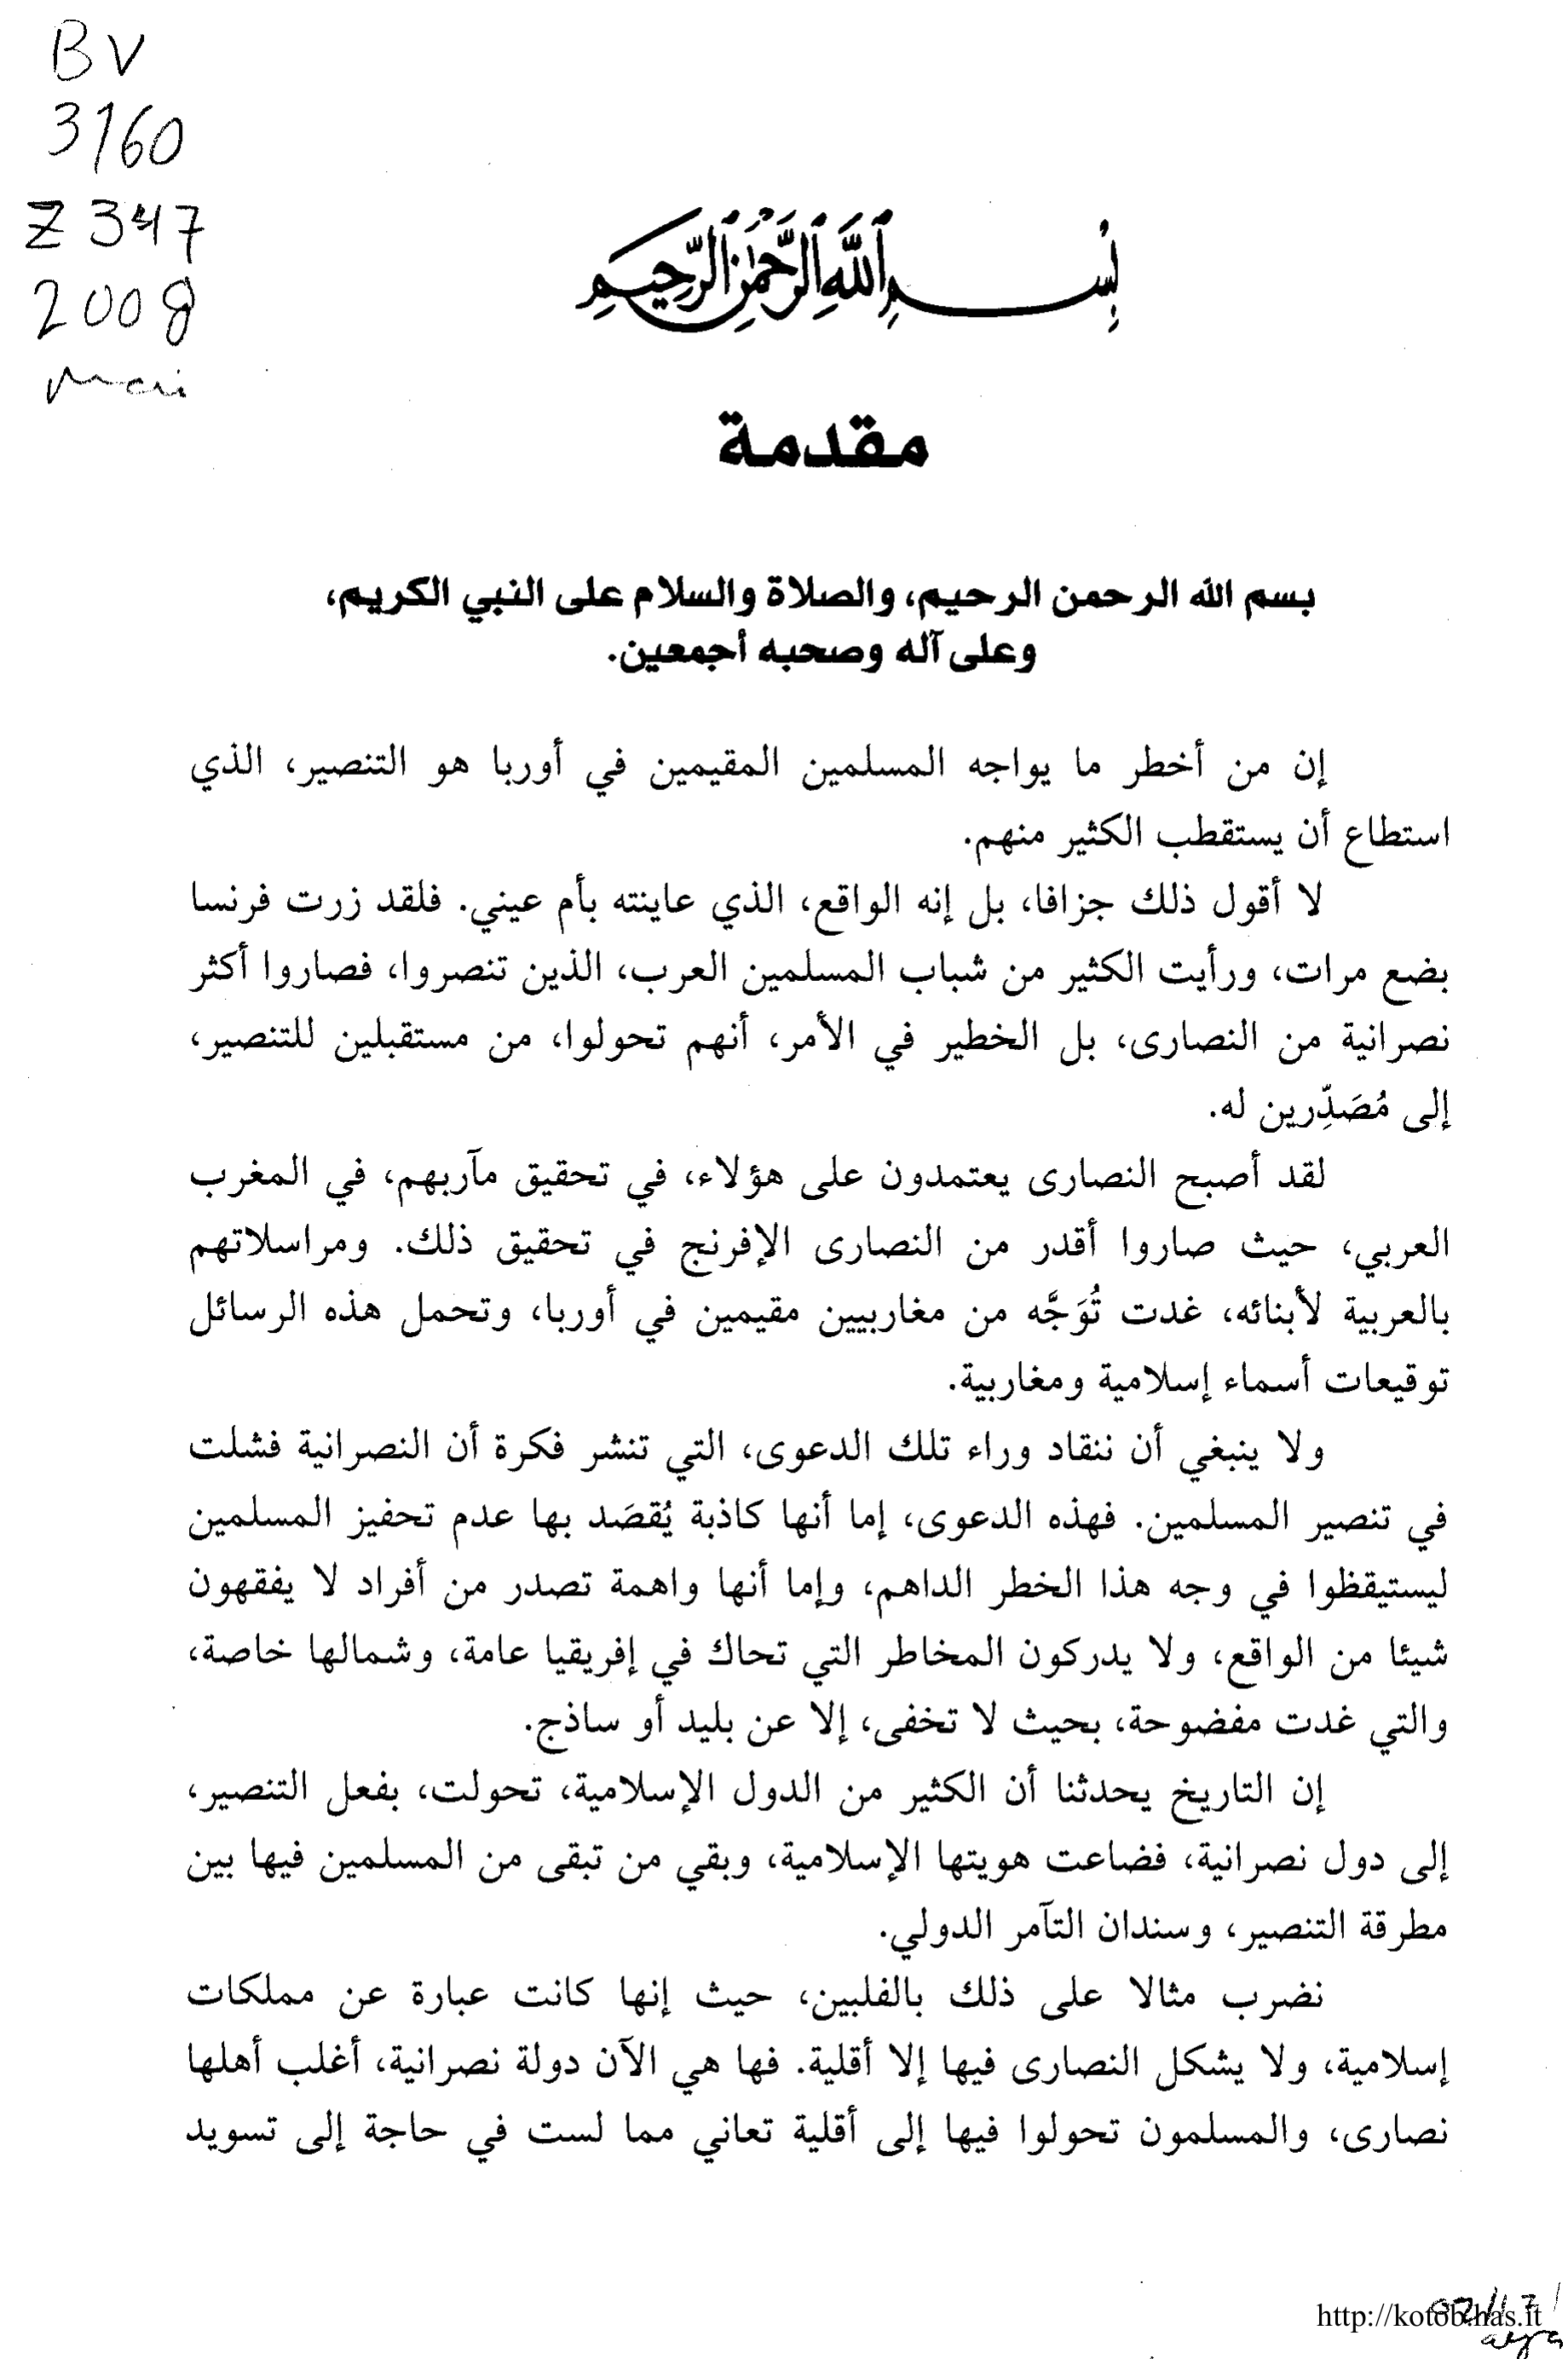 BV
3160
Z347
2008
بِسْمِ اللَّهِ الرَّحْمَٰنِ الرَّحِيمِ
مقدمة
بسم الله الرحمن الرحيم، والصلاة والسلام على النبي الكريم،
وعلى آله وصحبه أجمعين.
إن من أخطر ما يواجه المسلمين المقيمين في أوربا هو التنصير، الذي
استطاع أن يستقطب الكثير منهم.
لا أقول ذلك جزافا، بل إنه الواقع، الذي عاينته بأم عيني. فلقد زرت فرنسا
بضع مرات، ورأيت الكثير من شباب المسلمين العرب، الذين تنصروا، فصاروا أكثر
نصرانية من النصارى، بل الخطير في الأمر، أنهم تحولوا، من مستقبلين للتنصير،
إلى مُصَدِّرين له.
لقد أصبح النصارى يعتمدون على هؤلاء، في تحقيق مآربهم، في المغرب
العربي، حيث صاروا أقدر من النصارى الإفرنج في تحقيق ذلك. ومراسلاتهم
بالعربية لأبنائه، غدت تُوَجَّه من مغاربيين مقيمين في أوربا، وتحمل هذه الرسائل
توقيعات أسماء إسلامية ومغاربية.
ولا ينبغي أن ننقاد وراء تلك الدعوى، التي تنشر فكرة أن النصرانية فشلت
في تنصير المسلمين. فهذه الدعوى، إما أنها كاذبة يُقصَد بها عدم تحفيز المسلمين
ليستيقظوا في وجه هذا الخطر الداهم، وإما أنها واهمة تصدر من أفراد لا يفقهون
شيئا من الواقع، ولا يدركون المخاطر التي تحاك في إفريقيا عامة، وشمالها خاصة،
والتي غدت مفضوحة، بحيث لا تخفى، إلا عن بليد أو ساذج.
إن التاريخ يحدثنا أن الكثير من الدول الإسلامية، تحولت، بفعل التنصير،
إلى دول نصرانية، فضاعت هويتها الإسلامية، وبقي من تبقى من المسلمين فيها بين
مطرقة التنصير، وسندان التآمر الدولي.
نضرب مثالا على ذلك بالفلبين، حيث إنها كانت عبارة عن مملكات
إسلامية، ولا يشكل النصارى فيها إلا أقلية. فها هي الآن دولة نصرانية، أغلب أهلها
نصارى، والمسلمون تحولوا فيها إلى أقلية تعاني مما لست في حاجة إلى تسويد
http://kotob.has.it